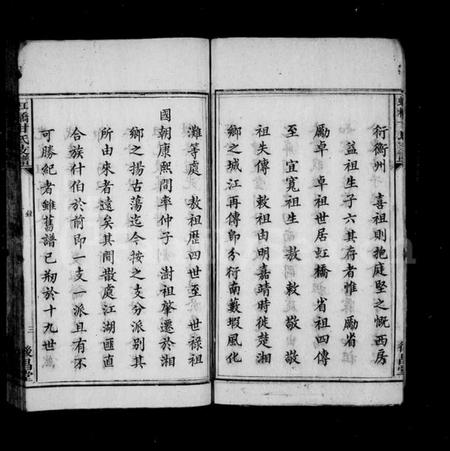 衍衡州　喜祖則抱庭堅之慨西房
益祖生子六其存者惟　勵省
勵卓　卓祖世居虹橋　省祖四傳
至　宜寬祖生　敖　敕　敬　敬
祖失傳　敕祖由明嘉靖時徙楚湘
鄉之城江再傳即分衍南藪蝦風化
灘等處　敖祖歷四世至　世祿祖
國朝康熙間率仲子　澍祖肇遷於湘
鄉之揚古蕩迄今按之支分派别其
所由來者遠矣其間散處江湖匪直
合族什伯於前即一支一派且有不
可勝紀者雖舊譜已剙於十九世
虹橋
氏
譜
三
後昌堂